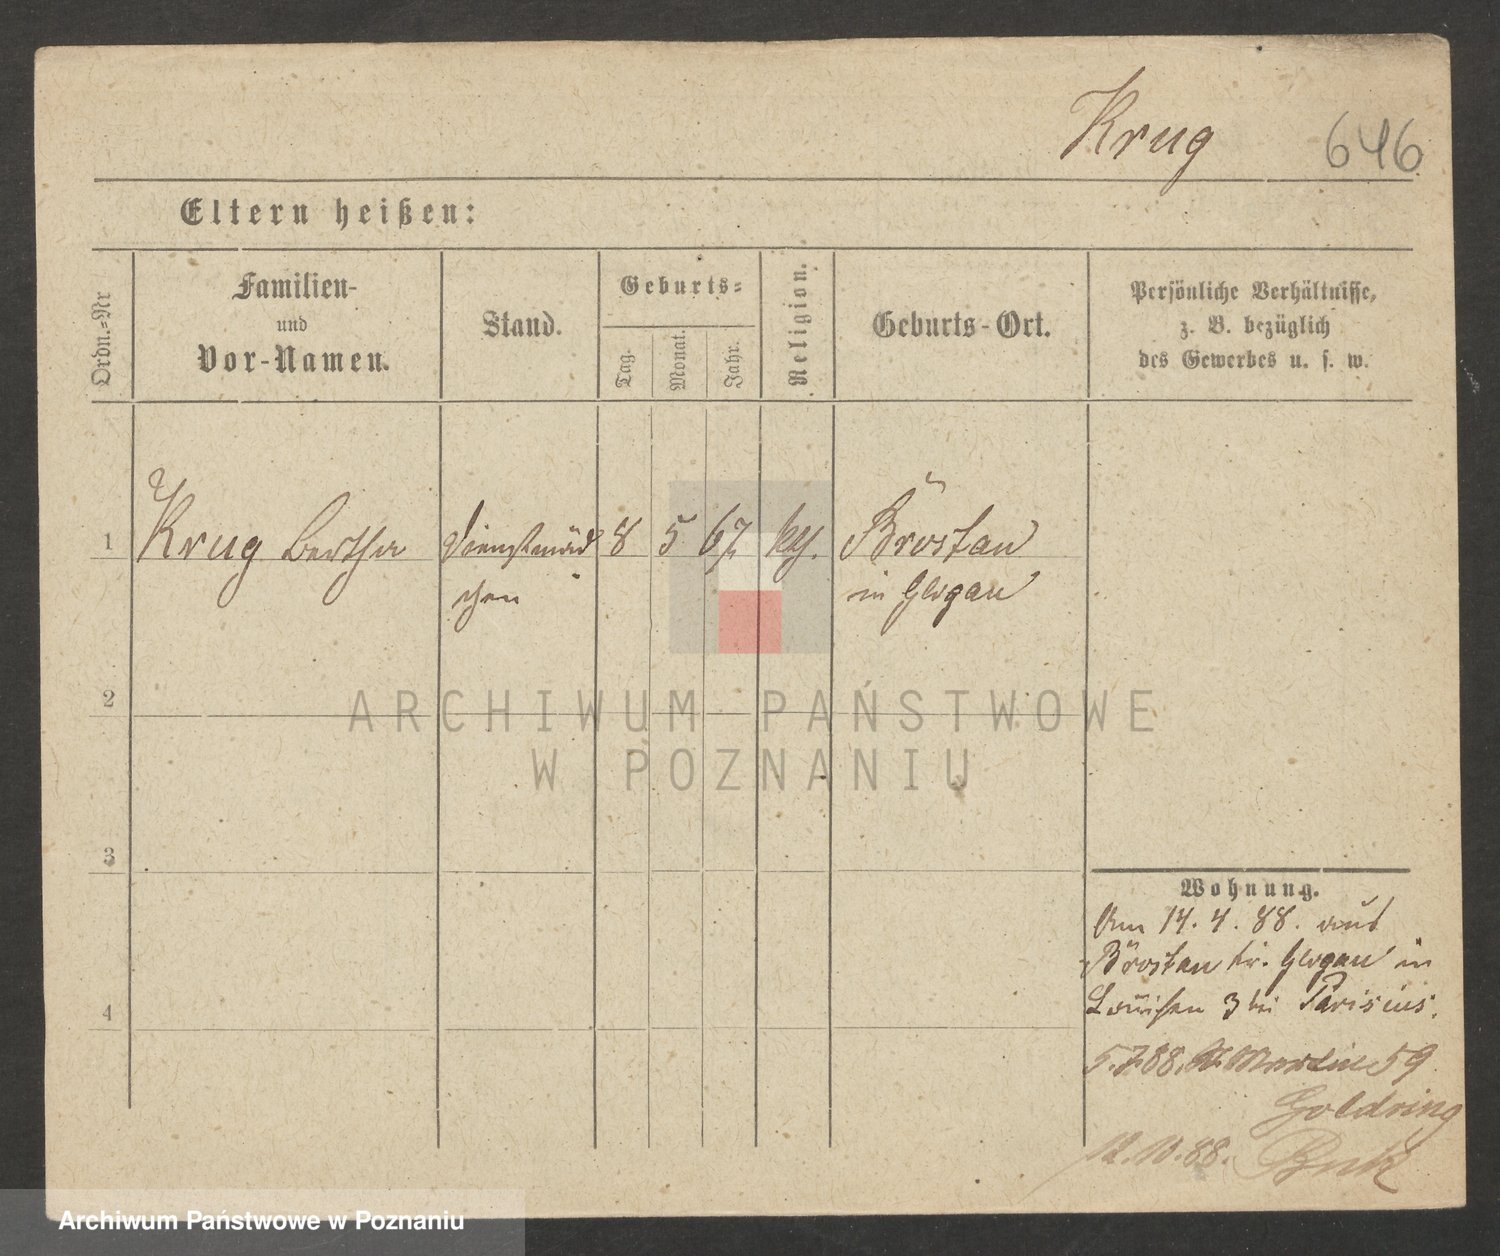 Krug 646
Eltern heißen:
Ordn.=Nr
Familien-
und
Vor-Namen.
Stand.
Geburts=
Tag.
Monat.
Jahr.
Religion.
Geburts-Ort.
Persönliche Verhältnisse,
z. B. bezüglich
des Gewerbes u. s. w.
1 Krug Bertha Dienstmäd 8 5 67 Brostau
chen in Glogau
2
3
4
Wohnung.
Am 14. 4. 88. aus
Brostau Kr. Glogau in
3 bei Pariscius.
5.7.88. St. Martin 59
Goldring
88.
ARCHIWUM PAŃSTWOWE
W POZNANIU
Archiwum Państwowe w Poznaniu